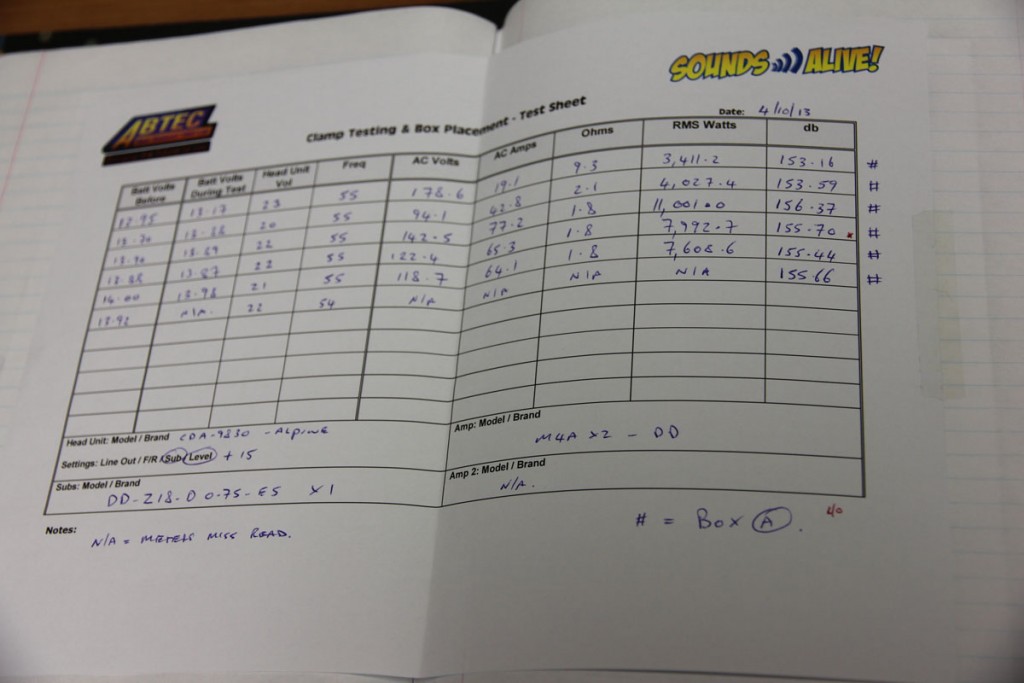 SOUNDS ALIVE!
ABTEC
Clamp Testing & Box Placement - Test Sheet
Date: 4/10/13
Batt Volts Before Batt Volts During Test Head Unit Vol Freq AC Volts AC Amps Ohms RMS Watts db
12.95 13.17 23 55 178.6 19.1 9.3 3,411.2 153.16 #
13.70 13.88 20 55 94.1 42.8 2.1 4,027.4 153.59 #
13.90 13.89 22 55 142.5 77.2 1.8 11,001.0 156.37 #
13.88 13.87 22 55 122.4 65.3 1.8 7,992.7 155.70 #
14.00 13.98 21 55 118.7 64.1 1.8 7,608.6 155.44 #
13.92 N/A. 22 54 N/A N/A N/A N/A 155.66 #
Head Unit: Model / Brand CDA-9830 - ALPINE
Settings: Line Out / F/R / Sub / Level + 15
Amp: Model / Brand
M4A X2 - DD
Subs: Model / Brand
DD-Z18-D0.75-ES X1
Amp 2: Model / Brand
N/A.
Notes:
N/A = METERS MISS READ.
# = BOX A.